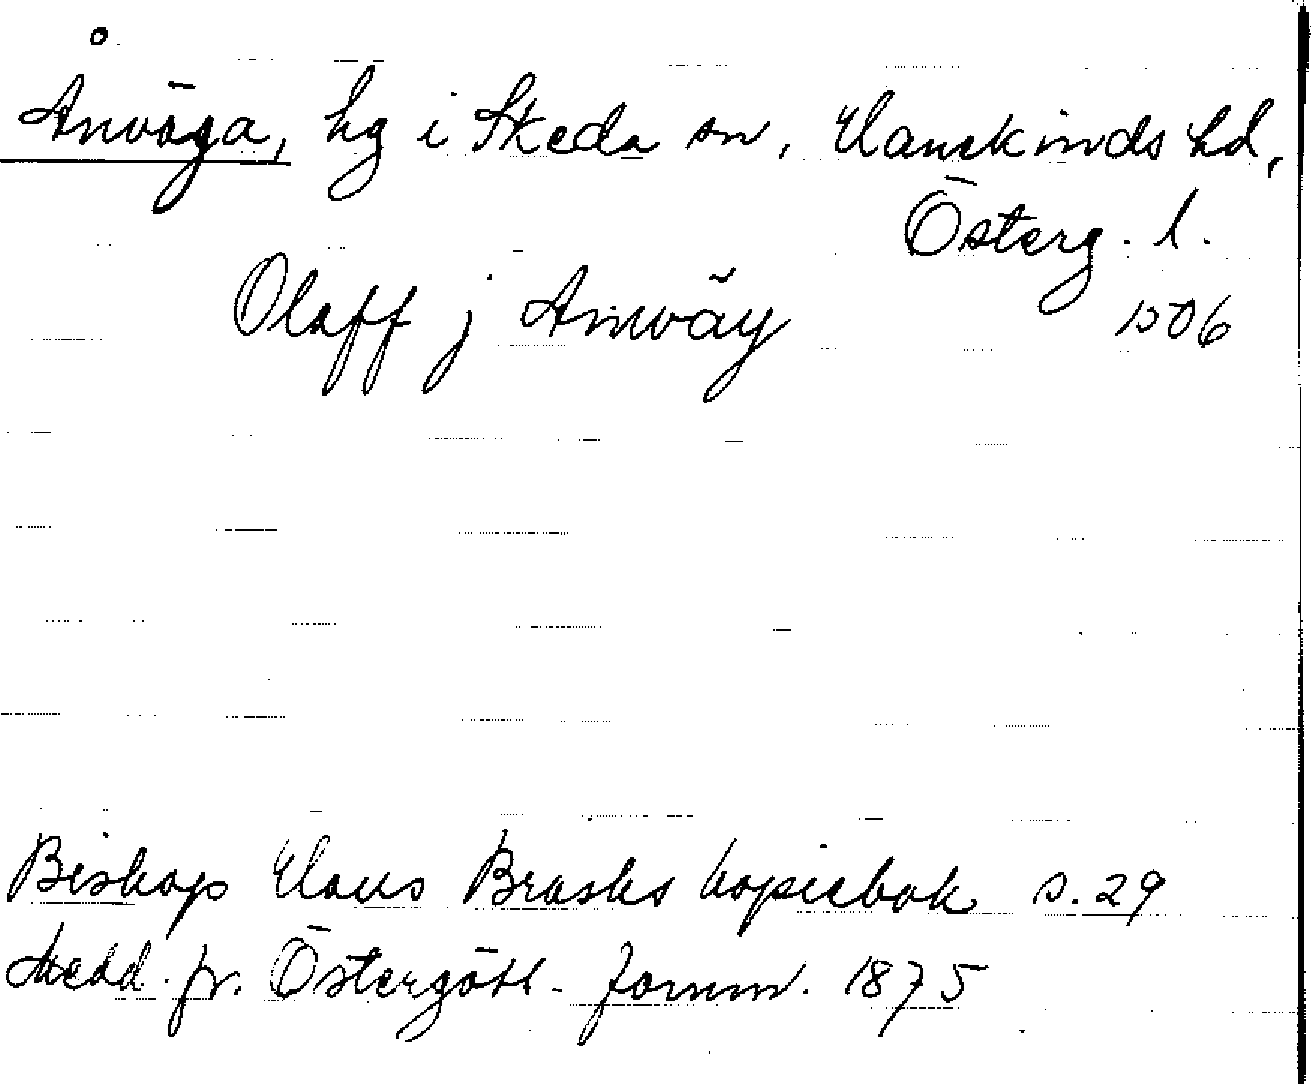 Ånväga, hg i Skeda sn, Hanekinds hd,
Österg. l.
Olaff j Anwäg 1506
Biskop Hans Brasks kopiebok s. 29
Medd. fr. Östergötl. fornm. 1875